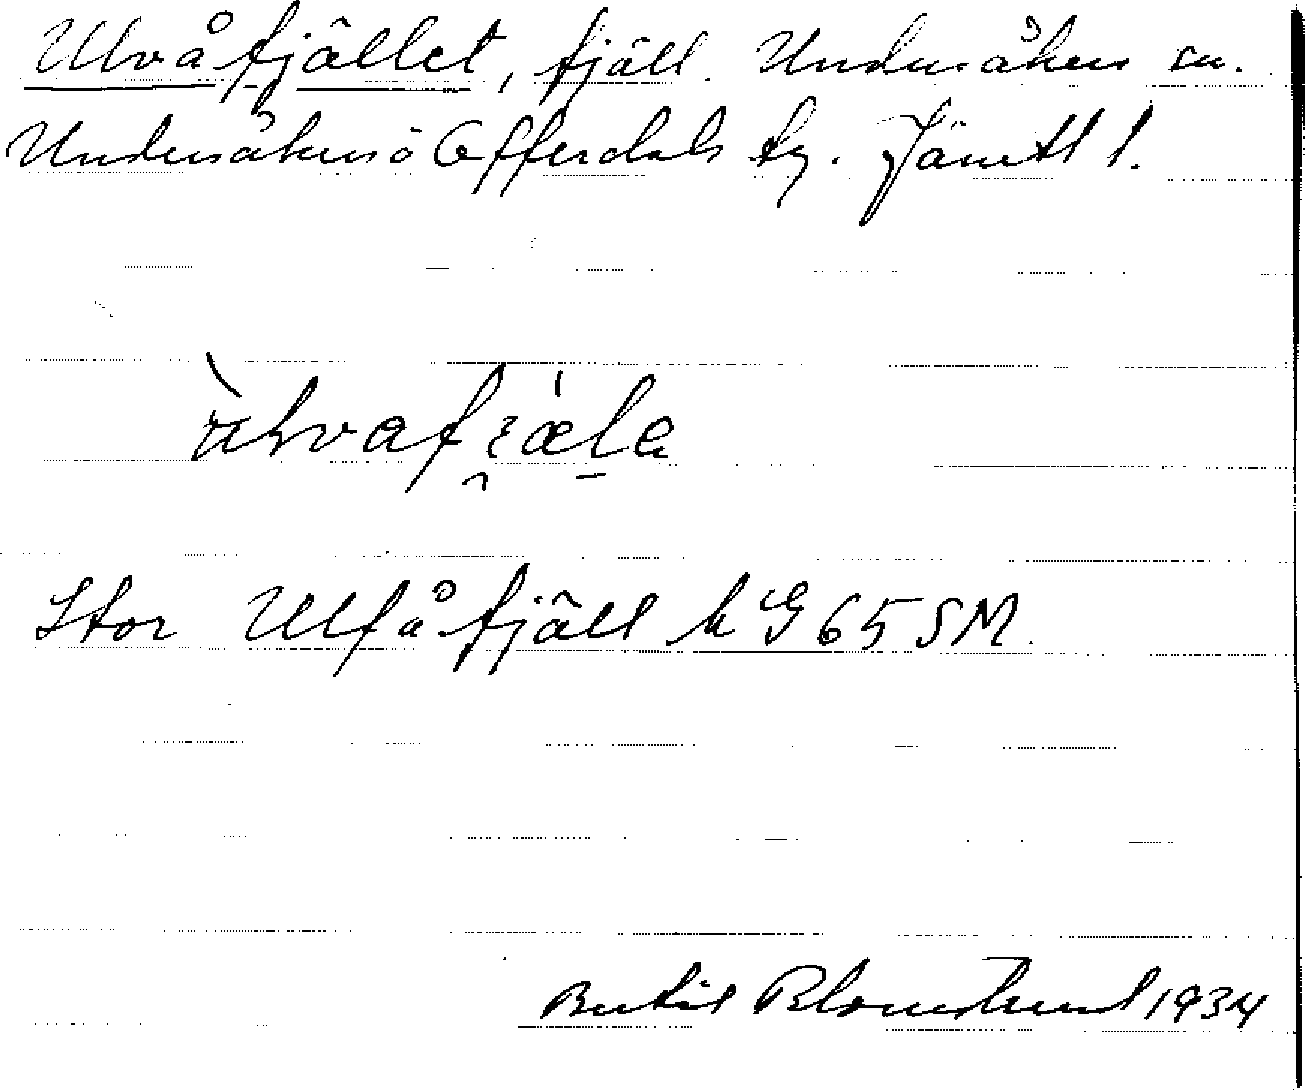 Ulvåfjället, fjäll. Undersåkers sn.
Undersåkers o Offerdals tg. Jämtl l.
Stor Ulfåfjäll k G 65 SM.
Bertil Blomstrand 1934